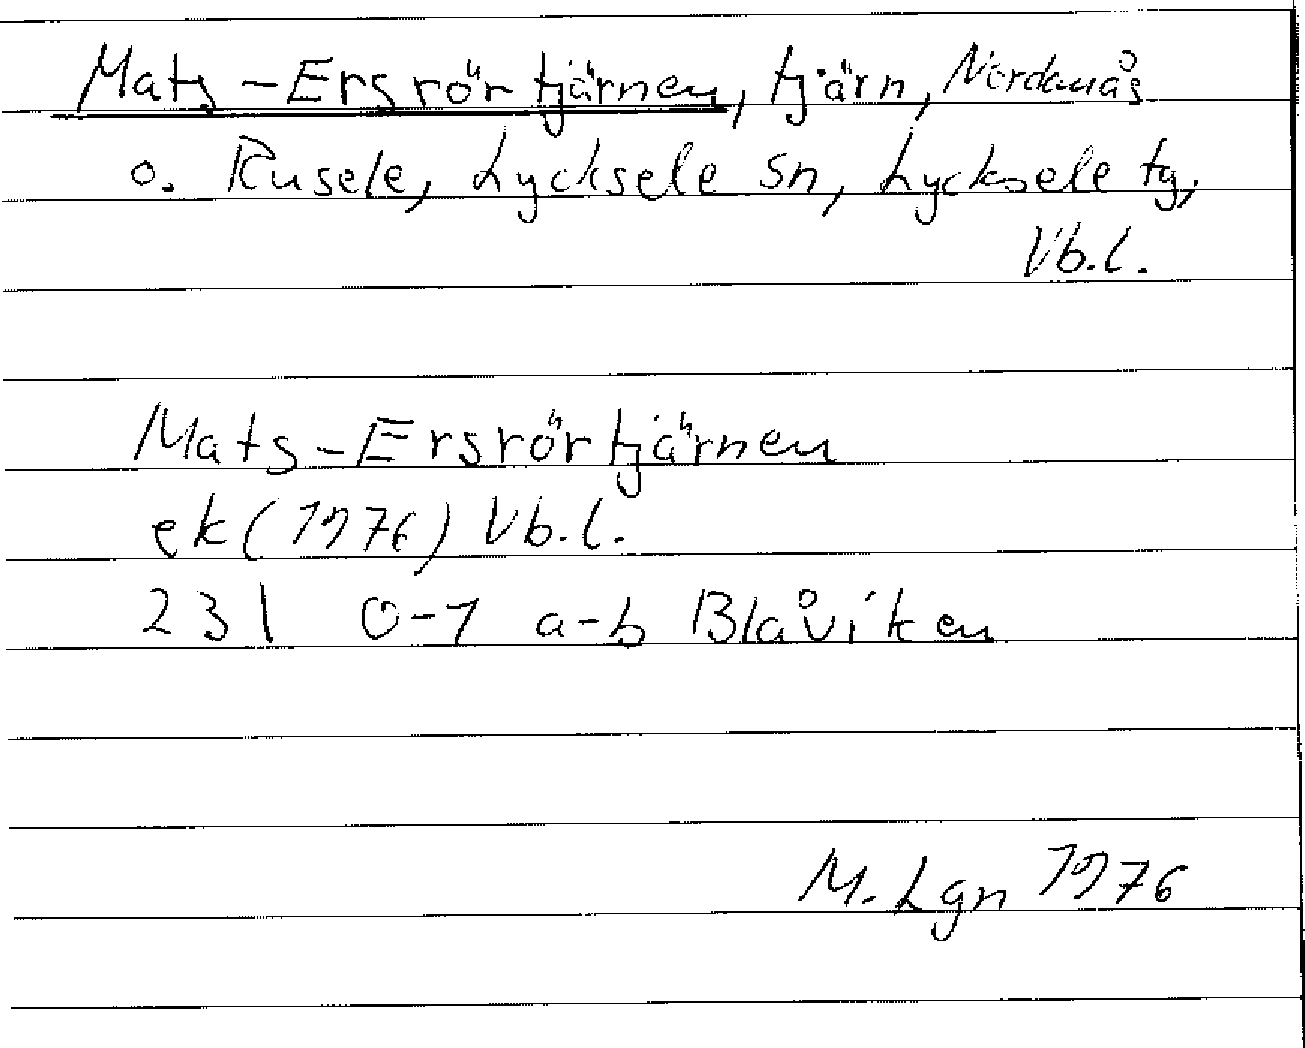 Mats-Ersrörtjärnen, tjärn, Nordanås
o. Rusele, Lycksele sn, Lycksele tg,
Vb.l.
Mats-Ersrörtjärnen
ek (1976) Vb.l.
23I 0-1 a-b Blåviken
M. Lgn 1976